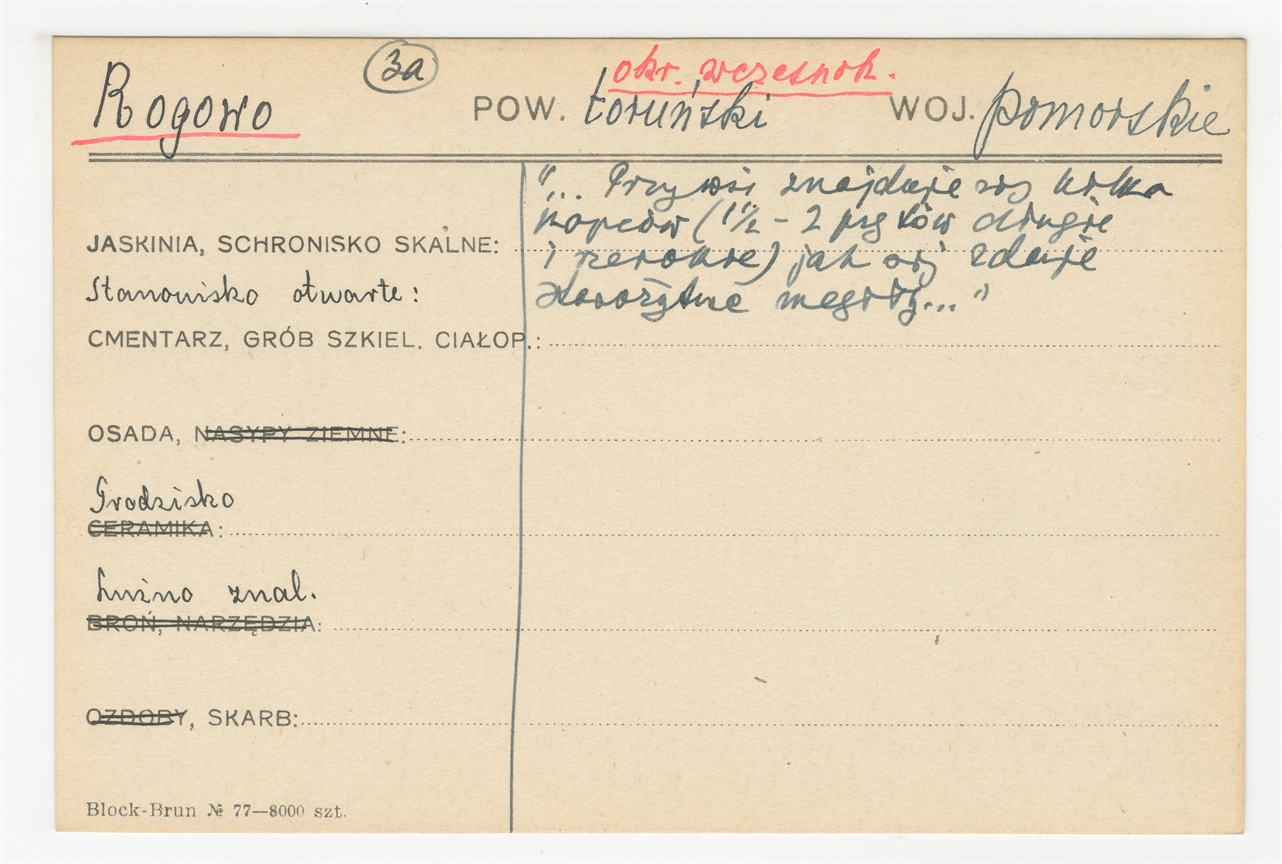 3a
okr. wczesnoh.
Rogowo POW. toruński WOJ. pomorskie
"... Przy wsi znajduje się kilka
kopców (1½ - 2 prętów długie
JASKINIA, SCHRONISKO SKALNE:
i szerokie) jak się zdaje
Stanowisko otwarte:
starożytne mogiły..."
CMENTARZ, GRÓB SZKIEL. CIAŁOP.:
OSADA, NASYPY ZIEMNE:
Grodzisko
CERAMIKA:
Luźno znal.
BROŃ, NARZĘDZIA:
OZDOBY, SKARB:
Block-Brun № 77—8000 szt.